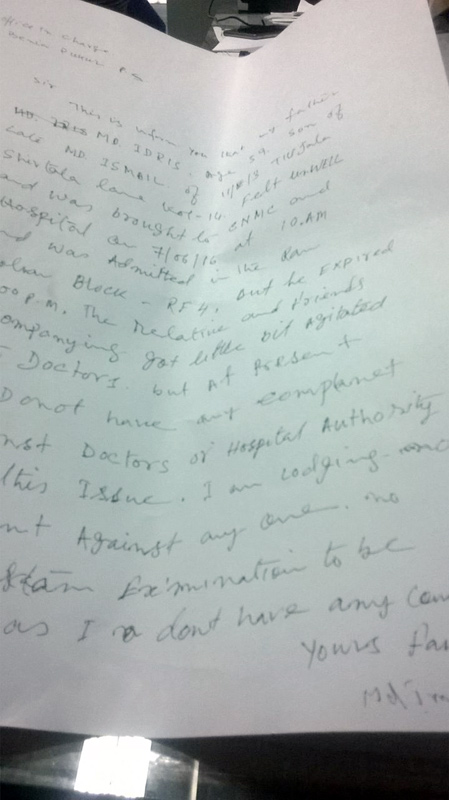 Officer in charge
P.S
Sir This is inform you that my father
MD. IDRIS - Age 59. Son of
Late MD. ISMAIL of 11/H/3 Tiljala
Shibtala lane Kol-14. Felt UNWELL
and was brought to CNMC and
Hospital on 7/06/16 at 10.AM
nd was Admitted in the
Block - RF4, but he Expired
00 P.M. The Relative and Friends
ompanying got little bit Agitated
- Doctors. but At Present
Donot have any complanet
nst Doctors or Hospital Authority
this Issue. I am Lodging
nt Against any one. no
Examination to be
as I dont have any Com
Yours fai